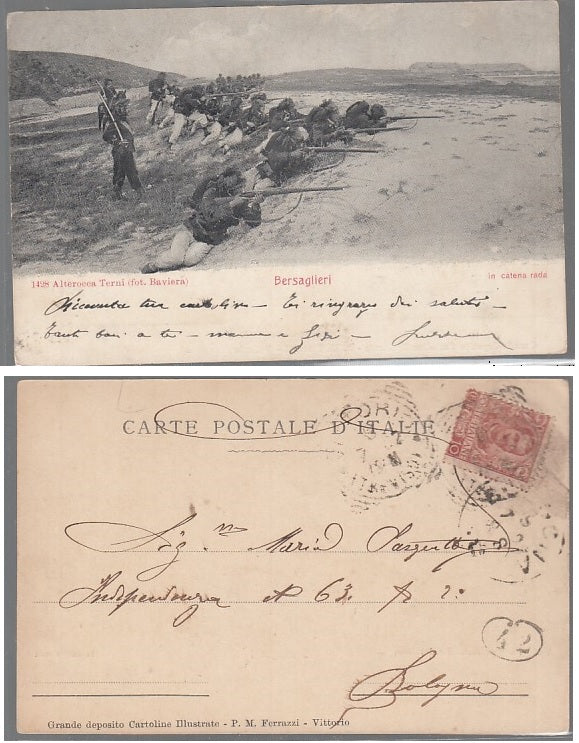 1428 Alterocca Terni (fot. Baviera)
Bersaglieri
in catena rada
Ricevuta tua cartolina - Ti ringrazio dei saluti -
Tanti baci a te - mamma e
CARTE POSTALE D'ITALIE
Sig.na Maria
Indipendenza N 63
Bologna
42
Grande deposito Cartoline Illustrate - P. M. Ferrazzi - Vittorio